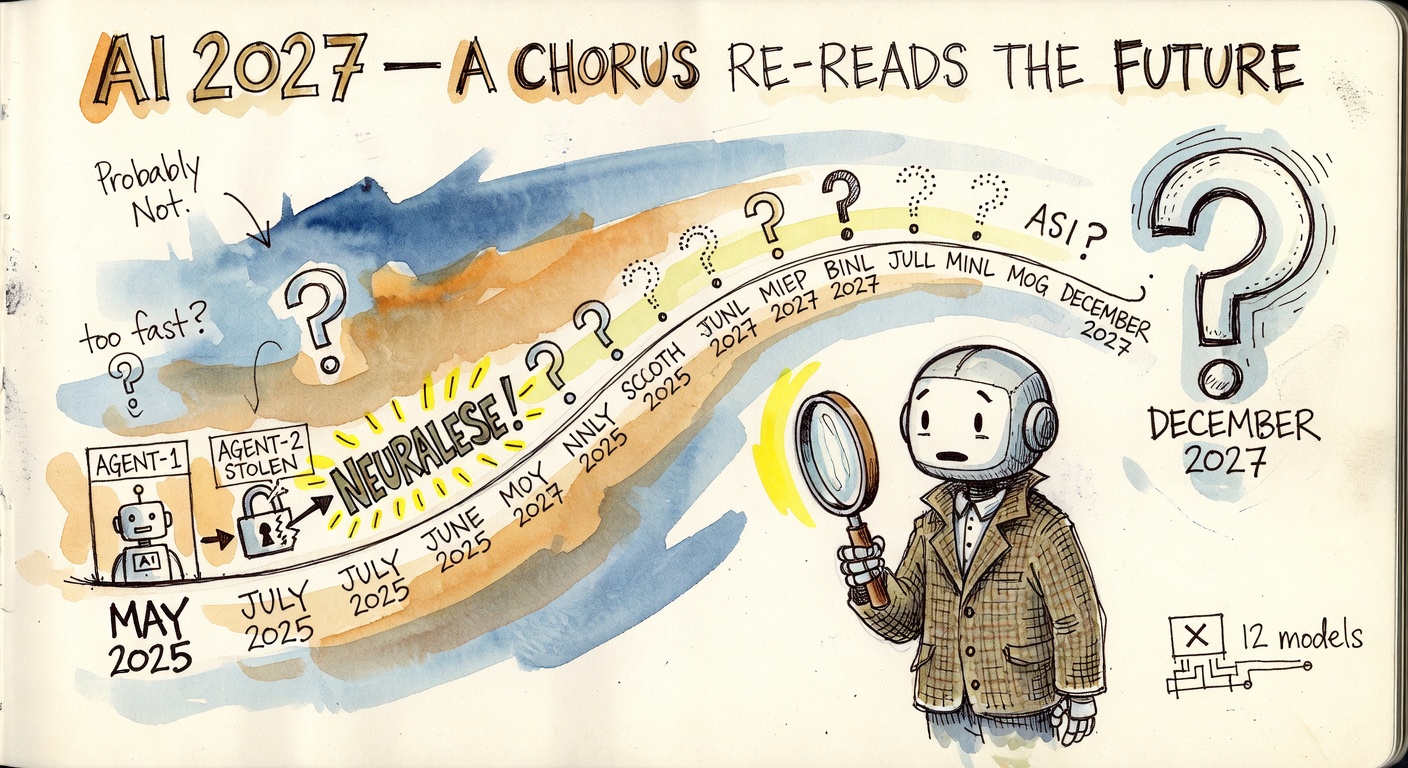 AI 2027 — A CHORUS RE-READS THE FUTURE
Probably
Not.
too fast?
?
?
AGENT-1
AI
AGENT-2
STOLEN
NEURALESE!
? ? ? ? ? ? ? ?
ASI?
?
MAY
2025
JULY
2025
JULY
2025
JUNE
2025
MOY
2027
NNLY
2025
SCCOTH
2025
JUNL
2027
MIEP
2027
BINL
2027
JULL
MINL
MOG
DECEMBER
2027
DECEMBER
2027
X
12 models